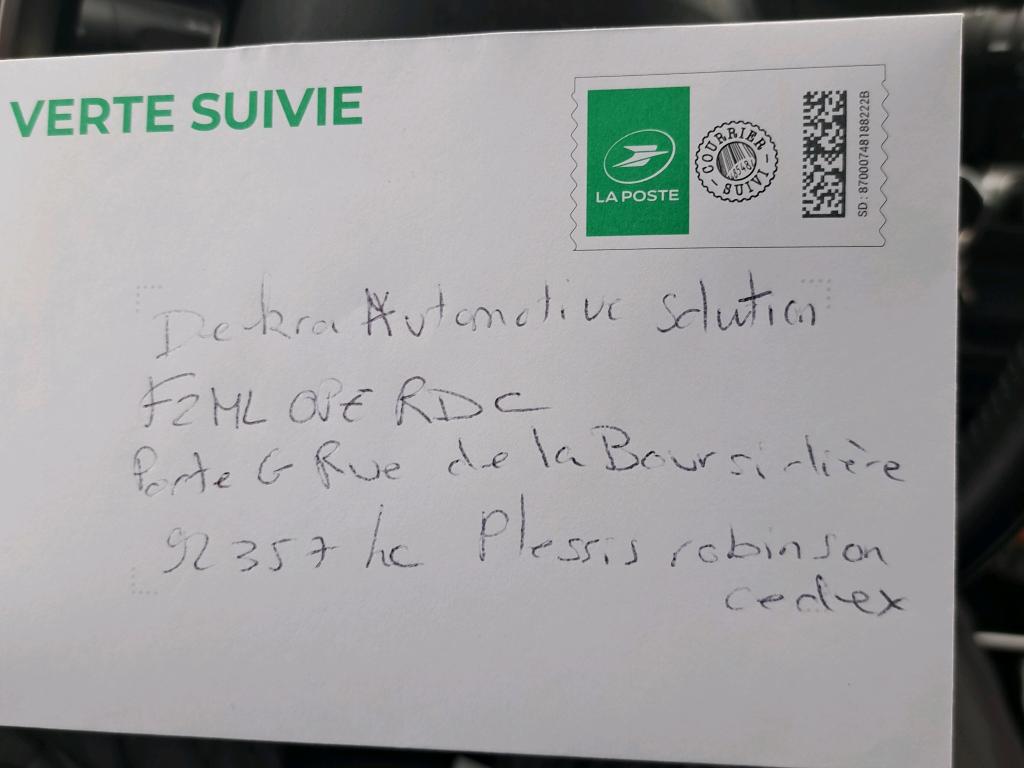 VERTE SUIVIE
LA POSTE
COURRIER SUIVI
SD : 87000748188222B
Dekra Automotive Solution
F2ML OPE RDC
Porte G Rue de la Boursidière
92357 le Plessis robinson
cedex